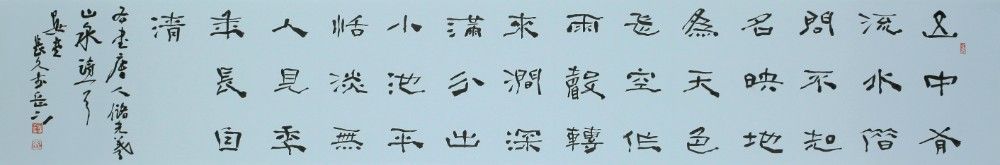 山中有
流水借
問不知
名映地
為天色
飛空作
雨聲轉
來澗深
滿分出
小池平
恬淡無
人見年
年長自
清
書唐人儲光羲
山泉詠